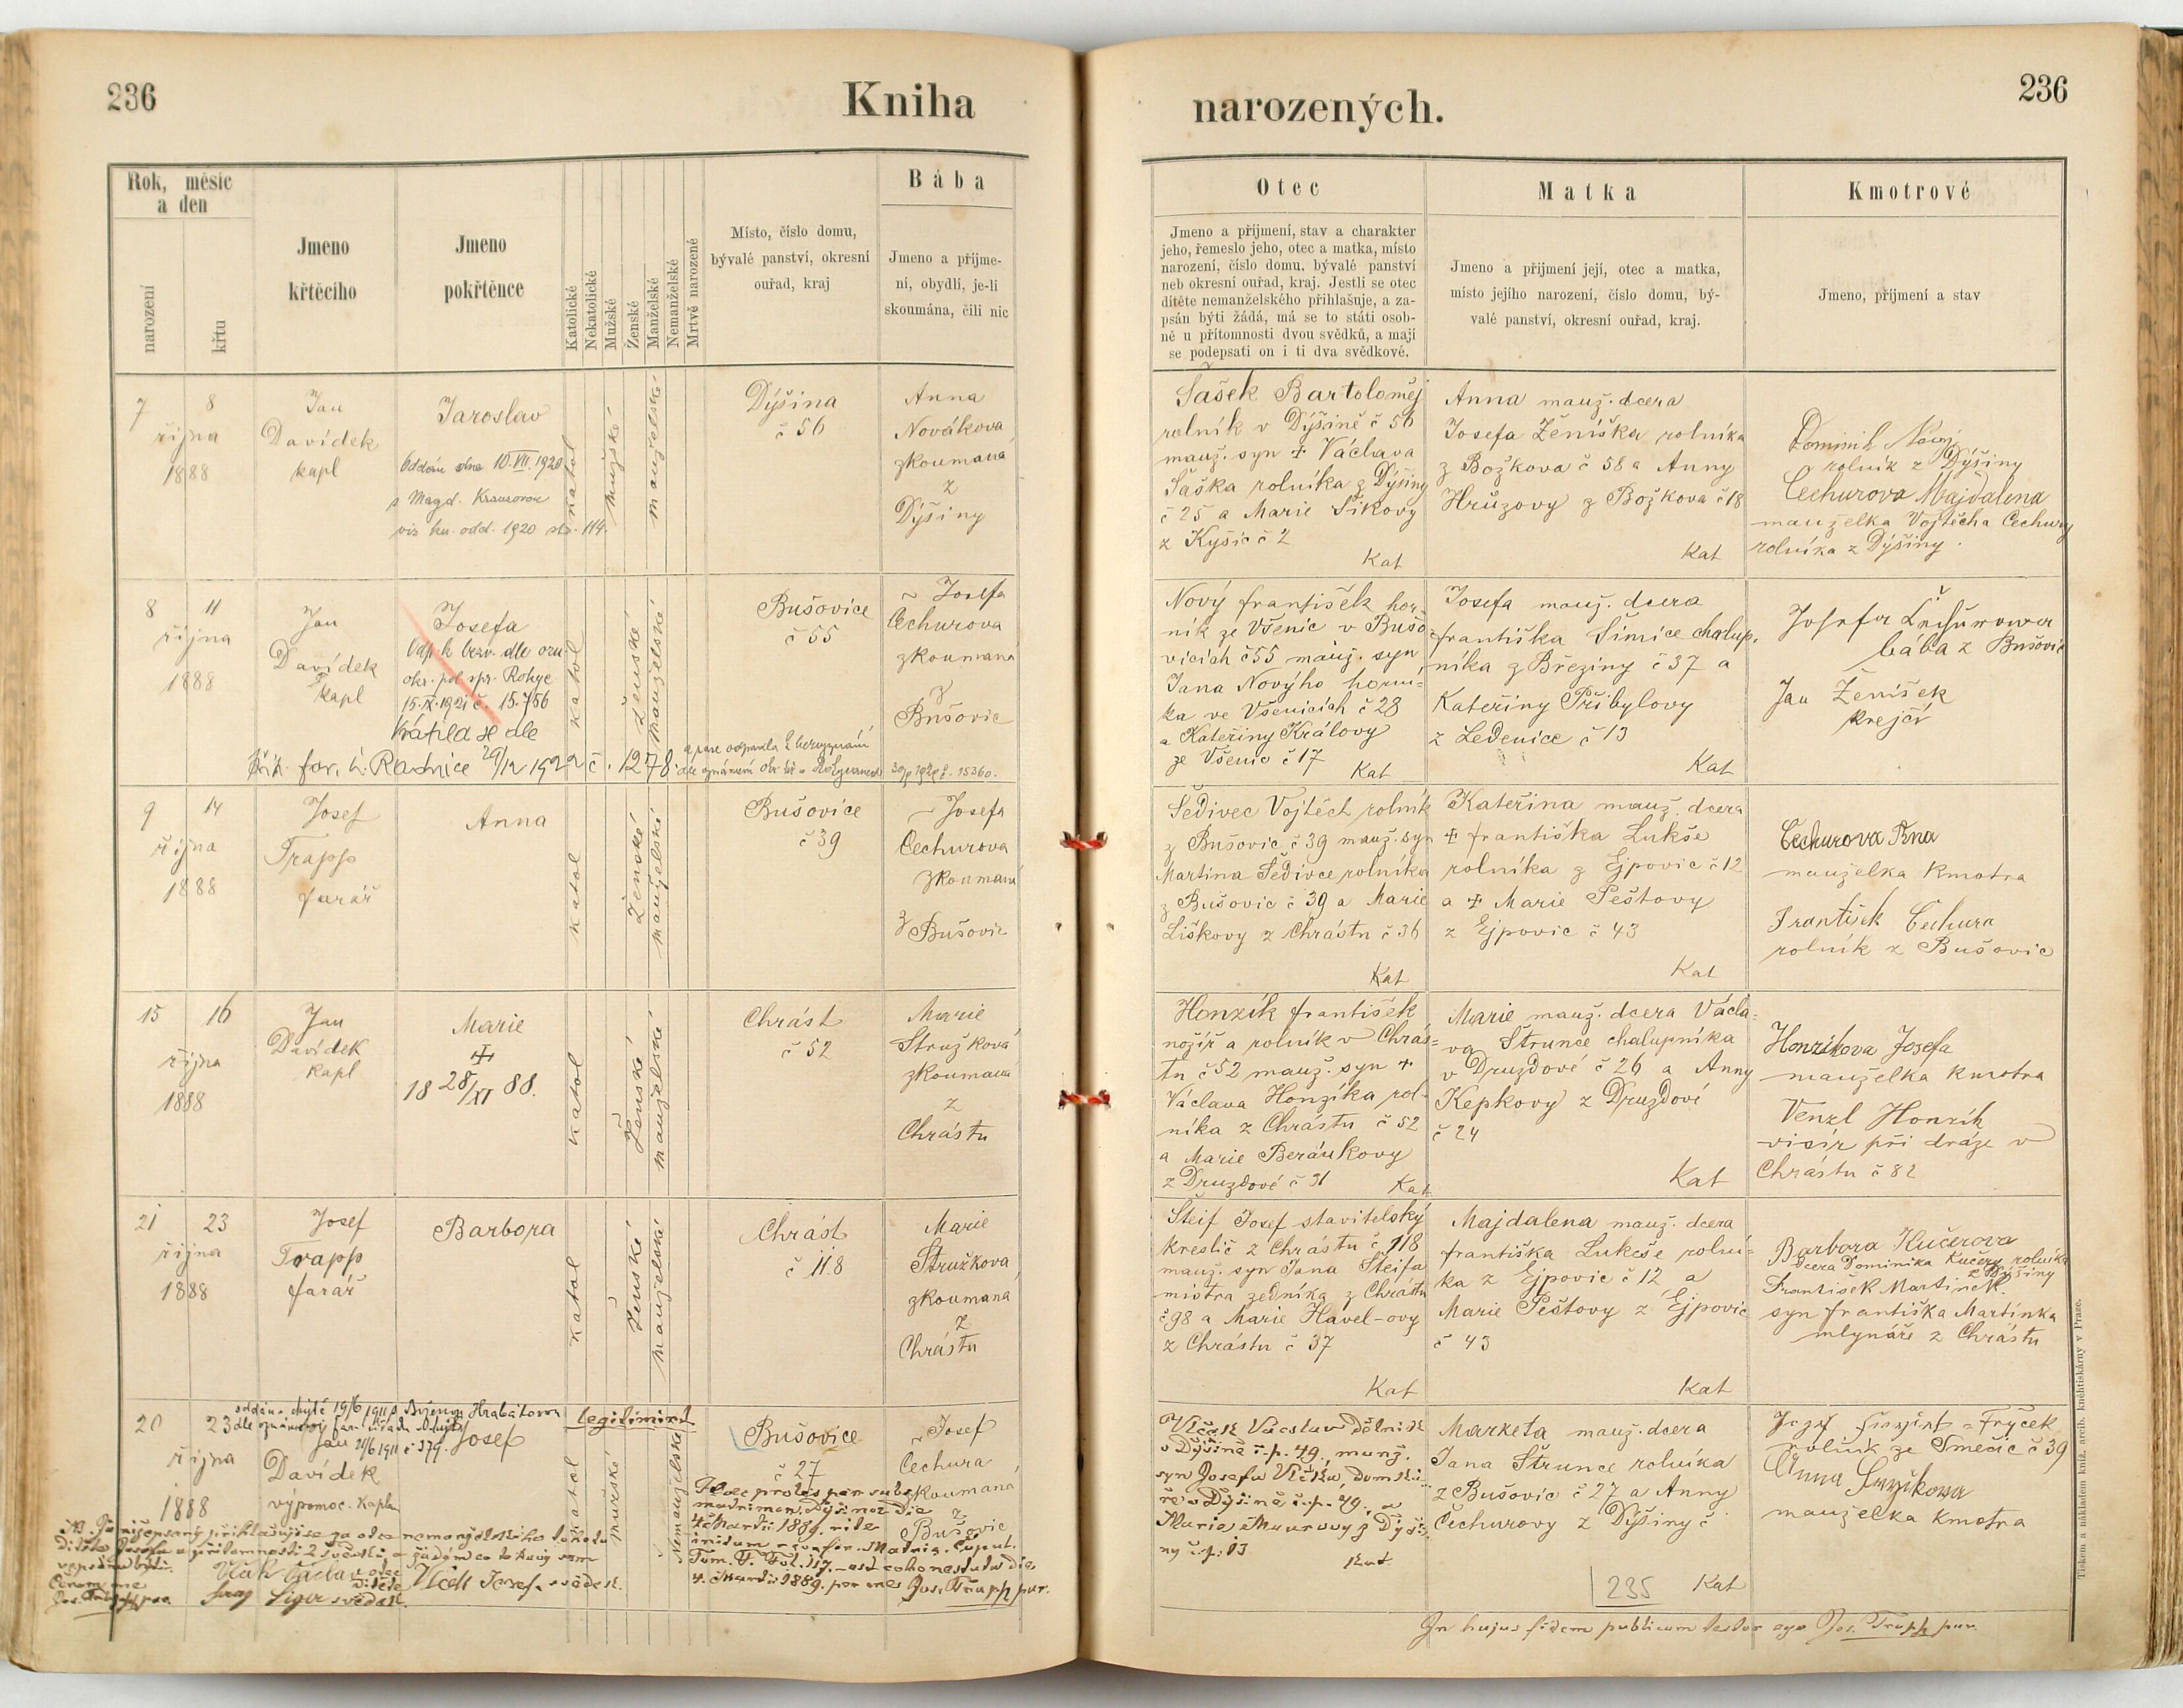 236
Kniha
narozených.
236
Rok, měsíc
a den
narození
křtu
Jmeno
křtěcího
Jmeno
pokřtěnce
Katolické
Nekatolické
Mužské
Ženské
Manželské
Nemanželské
Mrtvě narozené
Místo, číslo domu,
bývalé panství, okresní
ouřad, kraj
Bába
Jmeno a přijme-
ní, obydlí, je-li
skoumána, čili nic
Otec
Jmeno a příjmení, stav a charakter
jeho, řemeslo jeho, otec a matka, místo
narození, číslo domu, bývalé panství
neb okresní ouřad, kraj. Jestli se otec
dítěte nemanželského přihlašuje, a za-
psán býti žádá, má se to státi osob-
ně u přítomnosti dvou svědků, a mají
se podepsati on i ti dva svědkové.
Matka
Jmeno a přijmení její, otec a matka,
místo jejího narození, číslo domu, bý-
valé panství, okresní ouřad, kraj.
Kmotrové
Jmeno, příjmení a stav
7 8
října
1888
Jan
Davídek
kapl
Jaroslav
Oddán dne 10.VII.1920
s Magd. Krausovou
viz kn. odd. 1920 str. 114.
katol
mužské
manželské
Dýšina
č 56
Anna
Novákova
zkoumaná
z
Dýšiny
Šašek Bartoloměj
rolník v Dýšině č 56
manž. syn + Václava
Šaška rolníka z Dýšiny
č 25 a Marie Šikovy
z Kyšic č 2
Kat
Anna manž. dcera
Josefa Ženíška rolníka
z Božkova č 58 a Anny
Hrůzovy z Božkova č 18
Kat
Dominik
rolník z Dýšiny
Čechurova Majdalena
manželka Vojtěcha Čechury
rolníka z Dýšiny.
8 11
října
1888
Jan
Davídek
kapl
Josefa
Odp. k bezv. dle ozn.
okr. pol. spr. Rokyc
15.IX.1921 č. 15.756
vrátila se dle
far. ú. Radnice 29/12 1922 č. 1278.
katol
ženské
manželské
Bušovice
č 55
Josefa
Čechurova
zkoumaná
z
Bušovic
Nový František hor-
ník ze Všenic v Bušo-
vicích č 55 manž. syn
Jana Novýho horní-
ka ve Všenicích č 28
a Kateřiny Královy
ze Všenic č 17
Kat
Josefa manž. dcera
Františka Šimice chalup-
níka z Březiny č 37 a
Kateřiny Přibylovy
z Ledenice č 13
Kat
Josefa Čechurowa
bába z Bušovic
Jan Ženíšek
krejčí
9 14
října
1888
Josef
Trapp
farář
Anna
katol
Ženské
manželské
Bušovice
č 39
Josefa
Čechurova
zkoumaná
z Bušovic
Šedivec Vojtěch rolník
z Bušovic č 39 manž. syn
Martina Šedivce rolníka
z Bušovic č 39 a Marie
Liškovy z Chrástu č 36
Kat
Kateřina manž. dcera
+ Františka Lukše
rolníka z Ejpovic č 12
a + Marie Peštovy
z Ejpovic č 43
Kat
Čechurova Ana
manželka kmotra
František Čechura
rolník z Bušovic
15 16
října
1888
Jan
Davídek
kapl
Marie
+
18 28/XI 88.
katol
Ženské
manželské
Chrást
č 52
Marie
Stružková
zkoumaná
z
Chrástu
Honzík František
nožíř a rolník v Chrás-
tu č 52 manž. syn +
Václava Honzíka rol-
níka z Chrástu č 52
a Marie Beránkovy
z Druzdové č 31
Kat
Marie manž. dcera Václa-
va Štrunce chalupníka
v Druzdové č 26 a Anny
Kepkovy z Druzdové
č 24
Kat
Honzíkova Josefa
manželka kmotra
Venzl Honzík
visír při dráze v
Chrástu č 82
21 23
října
1888
Josef
Trapp
farář
Barbora
katol
Ženské
manželské
Chrást
č 118
Marie
Stružkova
zkoumaná
z
Chrástu
Šteif Josef stavitelský
kreslič z Chrástu č 118
manž. syn Jana Šteifa
mistra zedníka z Chrástu
č 98 a Marie Havel-ovy
z Chrástu č 37
Kat
Majdalena manž. dcera
Františka Lukeše rolní-
ka z Ejpovic č 12 a
Marie Peštovy z Ejpovic
č 43
Kat
Barbora Kučerova
dcera Dominika Kučery rolníka
z Dýšiny
František Martinek.
syn Františka Martinka
mlynáře z Chrástu
oddán 19/6 1911 s Boženou Hrabátovou
20 23
října
1888
Jan
Davídek
výpomoc. kaplan
21/6 1911 č 379. Josef
legitimirt
katol
mužské
Nemanželské
Bušovice
č 27
Josef
Čechura
zkoumaná
z
Bušovic
Haec proles per subs.
matrimon. Dýšinae die
4. Martii 1889.
Tom. V. Fol. 117.
4. Martii 1889. per me Jos. Trapp par.
dítěte Josefa u přítomnosti 2 svědků a žádám co takový sem
vepsán býti.
Vlček Václav otec
dítěte
Vlček Josef svědek.
svědek.
Vlček Václav dělník
v Dýšině č.p. 49., manž.
syn Josefa Vlčka, domká-
ře v Dýšině č.p. 49. a
Marie Maurovy z Dýši-
ny č.p. 13
Kat
Marketa manž. dcera
Jana Štrunce rolníka
z Bušovic č 27 a Anny
Čechurovy z Dýšiny č
Kat
235
Josef Fryček
rolník ze Smečic č 39
Anna
manželka kmotra
In hujus fidem publicam testor ego Jos. Trapp par.
Tiskem a nákladem kniž. arcib. knihtiskárny v Praze.